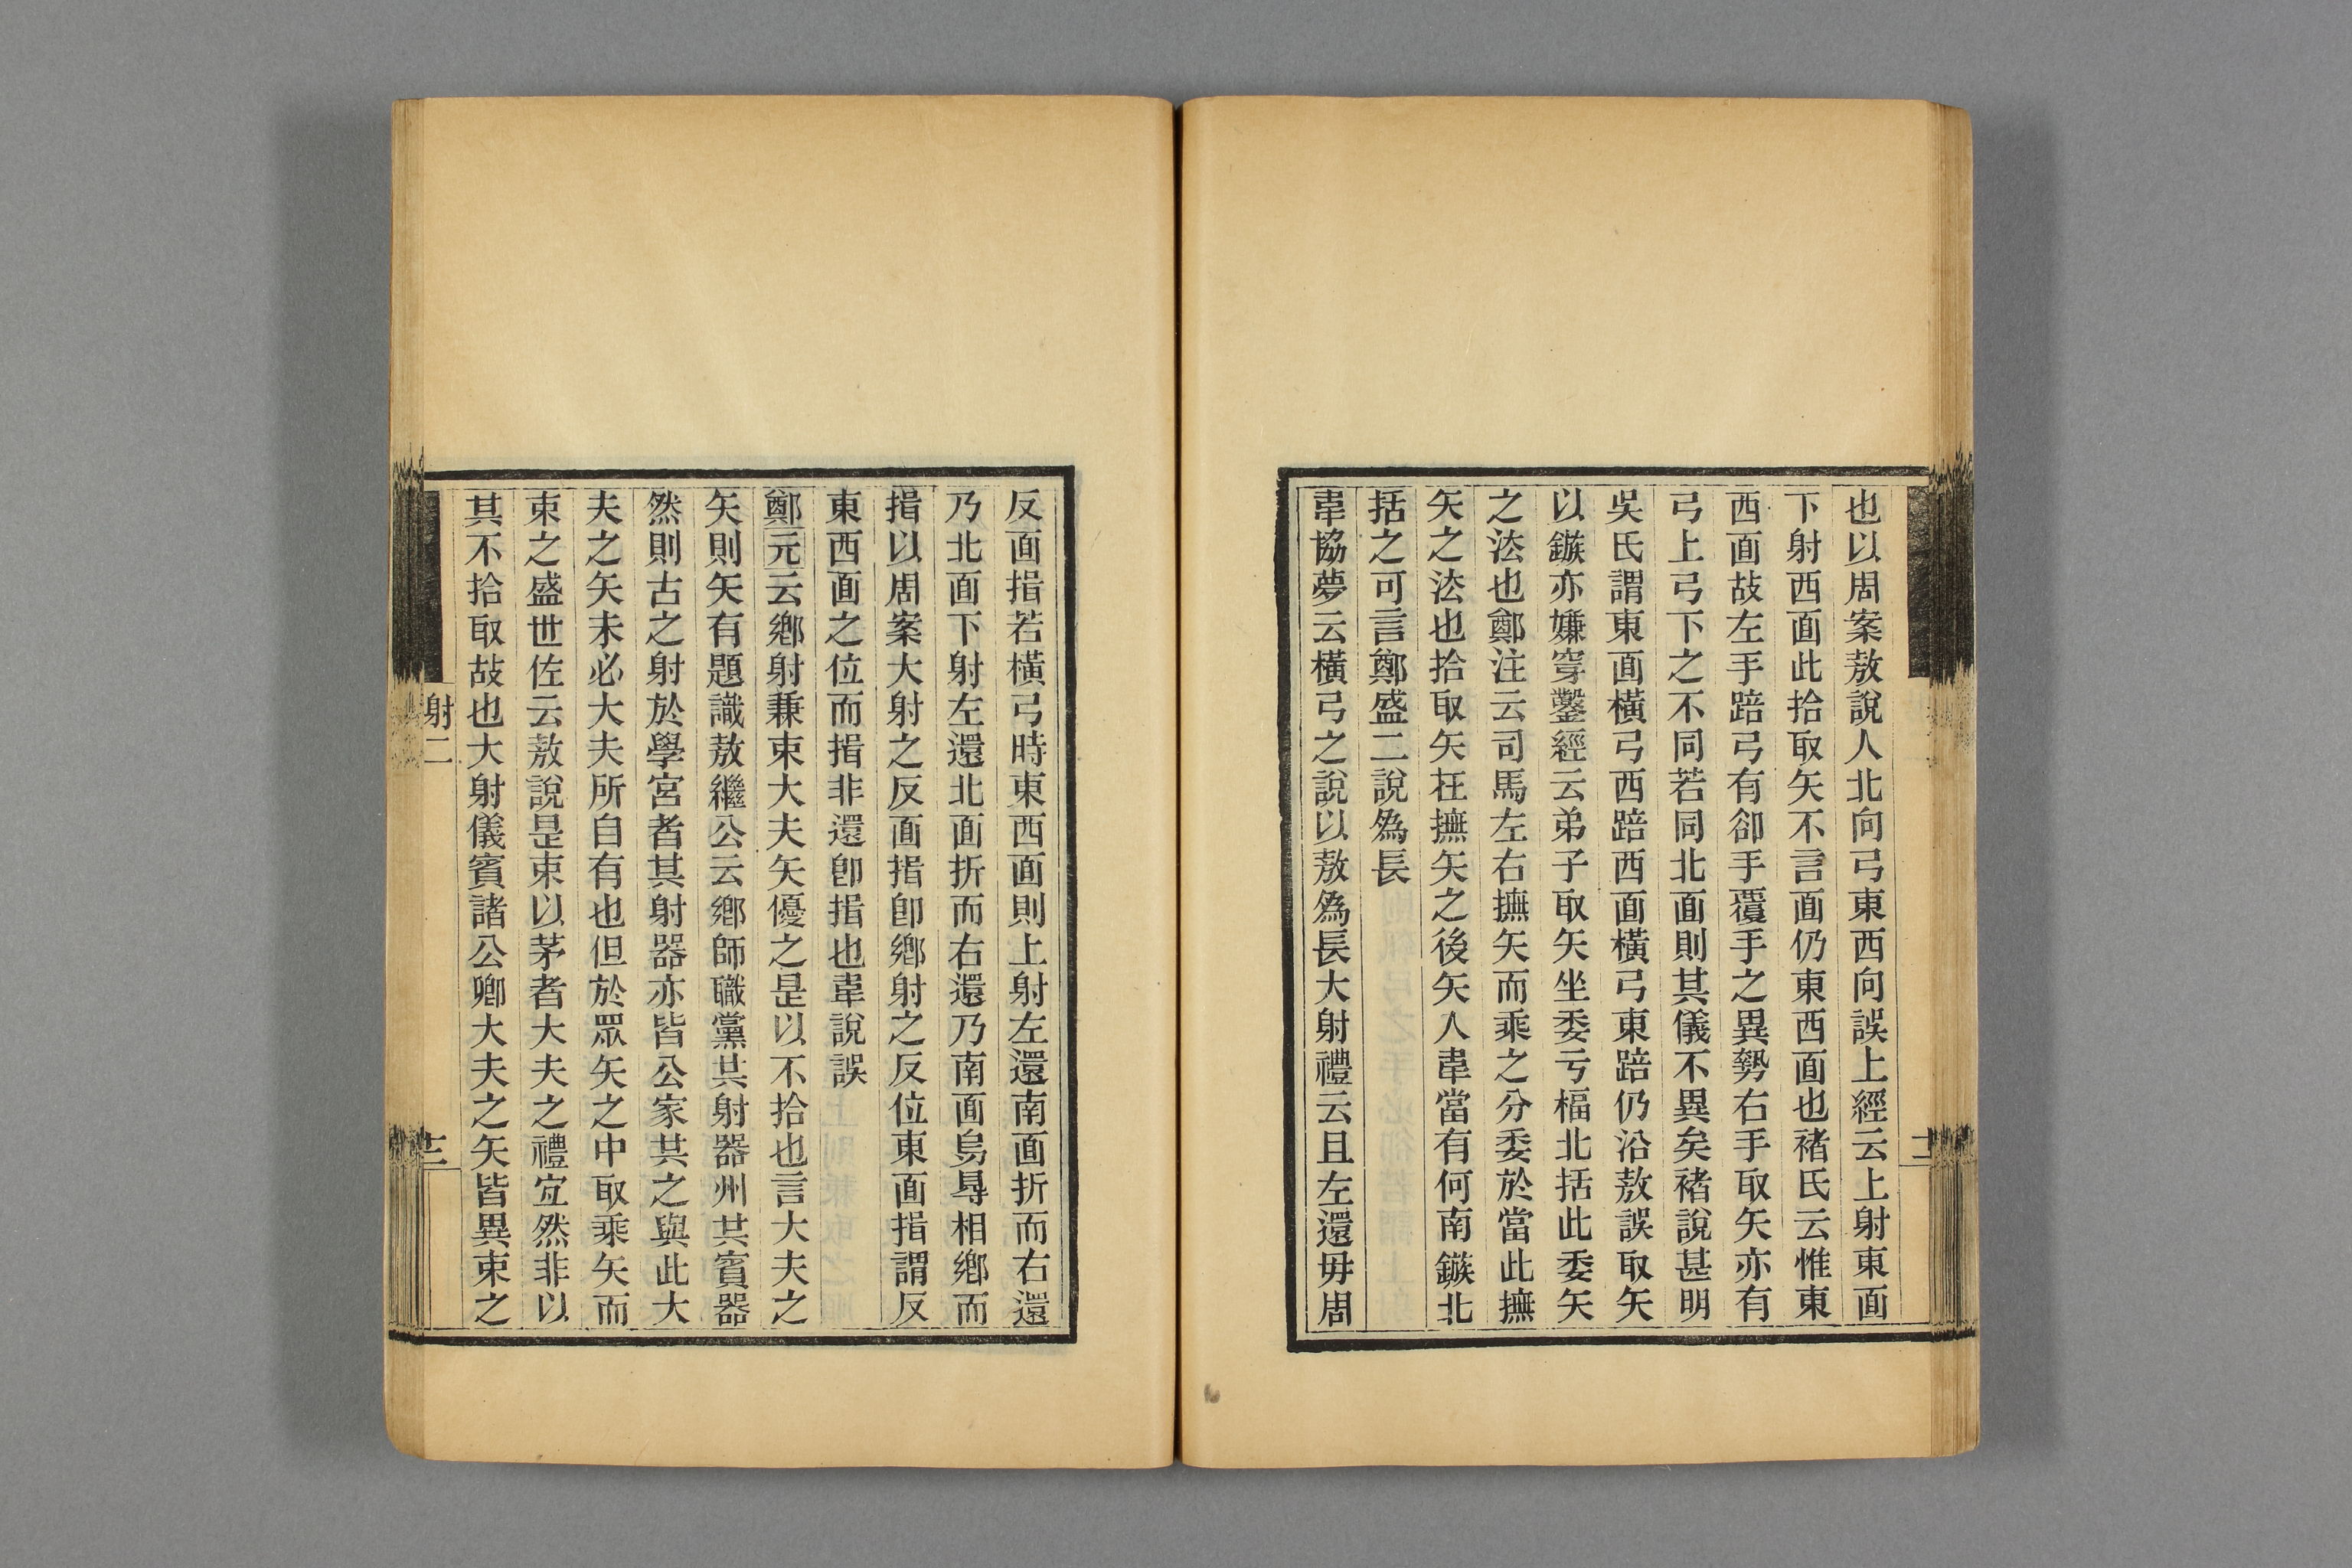 也以周案敖說人北向弓東西向誤上經云上射東面
下射西面此拾取矢不言面仍東西面也褚氏云惟東
西面故左手踣弓有卻手覆手之異勢右手取矢亦有
弓上弓下之不同若同北面則其儀不異矣褚說甚明
吳氏謂東面橫弓西踣西面橫弓東踣仍沿敖誤取矢
以鏃亦嫌穿鑿經云弟子取矢坐委亏楅北括此委矢
之法也鄭注云司馬左右撫矢而乘之分委於當此撫
矢之法也拾取矢在撫矢之後矢人韋當有何南鏃北
括之可言鄭盛二說為長
韋協夢云橫弓之說以敖為長大射禮云且左還毋周
反面揖若橫弓時東西面則上射左還南面折而右還
乃北面下射左還北面折而右還乃南面烏㝵相鄉而
揖以周案大射之反面揖卽鄉射之反位東面揖謂反
東西面之位而揖非還卽揖也韋說誤
鄭元云鄉射兼束大夫矢優之是以不拾也言大夫之
矢則矢有題識敖繼公云鄉師職黨共射器州共賓器
然則古之射於學宮者其射器亦皆公家共之與此大
夫之矢未必大夫所自有也但於眾矢之中取乘矢而
束之盛世佐云敖說是束以茅者大夫之禮宜然非以
其不拾取故也大射儀賓諸公卿大夫之矢皆異束之
射二
十三